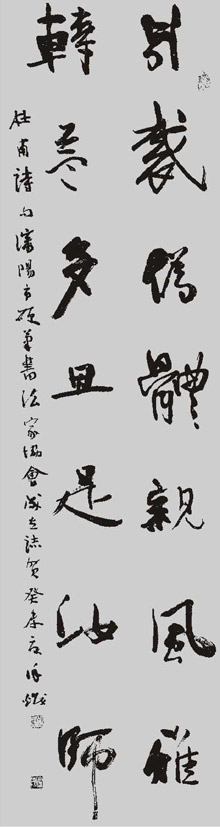 別裁偽體親風雅
轉益多師是汝師
杜甫詩句瀋陽市硬筆書法家協會成立誌賀癸未夏